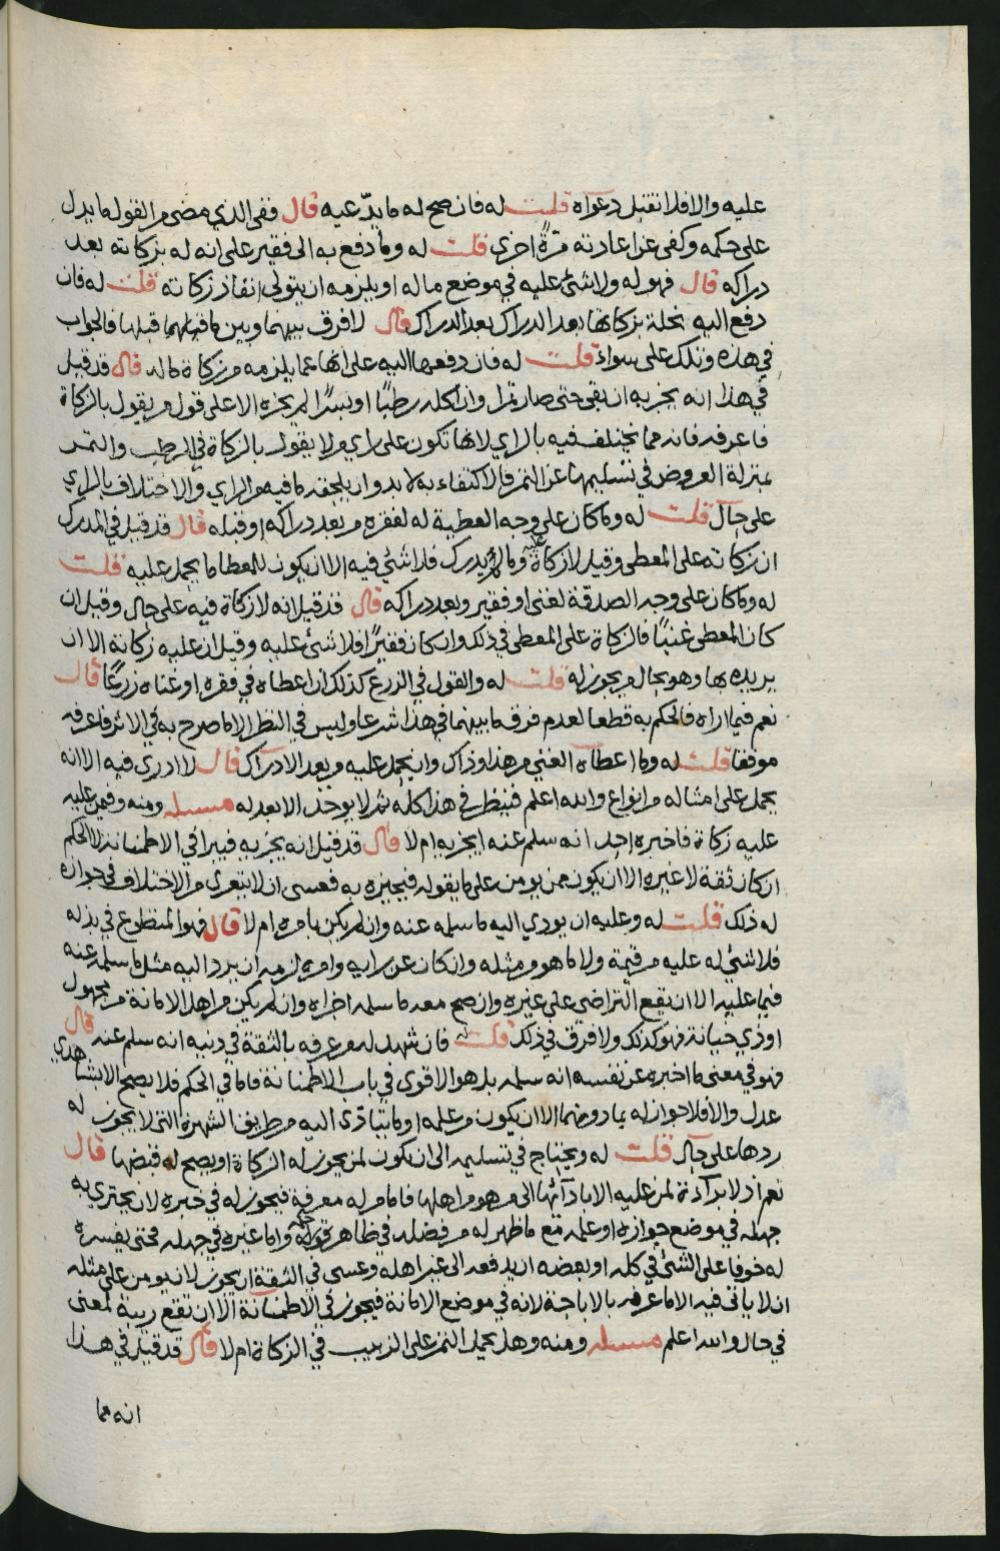 عليه والا فلا تقبل دعواه قلت له فان صح له ما يدّعيه قال ففي الذي مضى من القول ما يدل
على حكمه وكفى عن اعادته مرةً اخرى قلت له وما دفع به الى فقير على انه له بزكاته بعد
دراكه قال فهو له ولا شئ عليه في موضع ماله او يلزمه ان يتولى انفاذ زكاته قلت له فان
دفع اليه نخلة بزكاتها بعد الدراك بعد الدراك قال لا فرق بينهما وبين ما قبلهما قبلها فالجواب
في هذه وتلك على سواء قلت له فان دفعها اليه على انها عما يلزمه من زكاة ماله قال قد قيل
في هذا انه يجزيه ان بقي حتى صار تمرا وان اكله رطبًا او بسرًا لم يجزه الا على قول من يقول بالزكاة
فاعرفه فانه مما يختلف فيه بالراي لانها تكون على راي من لا يقول بالزكاة في الرطب والتمر
بمنزلة العروض في تسليمها عن التمر فالاكتفاء به لا بد وان يلحقه ما فيه من الراي والاختلاف بالراي
على حال قلت له وما كان على وجه العطية له لفقره من بعد دراكه او قبله قال قد قيل في المدرك
ان زكاته على المعطي وقيل لا زكاة عليه وما لم يدرك فلا شئ فيه الا ان يكون للمعطا ما يحمل عليه قلت
له وما كان على وجه الصدقة لغني او فقير وبعد دراكه قال قد قيل انه لا زكاة فيه على حال وقيل ان
كان المعطى غنيًا فالزكاة على المعطي في ذلك وان كان فقيرًا فلا شئ عليه وقيل ان عليه زكاته الا ان
يريده بها وهو بحال من يجوز له قلت له والقول في الزرع كذلك ان اعطاه في فقره او غناه زرعًا قال
نعم فيما اراه فالحكم به قطعا لعدم فرق ما بينهما في هذا شرعا وليس في النظر الا ما صرح به في الاثر فاعرفه
موفقا قلت له وما اعطاه الغني من هذا وذاك وان يحمل عليه من بعد الادراك قال لا ادري فيه الا انه
يحمل على امثاله من انواع والله اعلم فينظر في هذا كله ثم لا يوخذ الا بعدله مسئله ومنه وفيمن عليه
عليه زكاة فاخبره احد انه سلم عنه ايجزيه ام لا قال قد قيل انه يجزيه فيبرا في الاطمنانة لا الحكم
ان كان ثقة لا غيره الا ان يكون ممن يومن على ما يقوله فيجيزه به فعسى ان لا يتعرى من الاختلاف في جوازه
له ذلك قلت له وعليه ان يودي اليه ما سلمه عنه وان لم يكن بامره ام لا قال فهو المتطوع في بذله
فلا شئ له عليه من قيمة ولا ما هو من مثله وان كان عن رايه وامره لزمه ان يرد اليه مثل ما سلمه عنه
فيما عليه الا ان يقع التراضي على غيره وان صح معه ما سلمه اجزاه وان لم يكن من اهل الامانة من مجهول
او ذي خيانة فهو كذلك ولا فرق في ذلك قلت له فان شهد له من عرفه بالثقة في دينه انه سلم عنه قال
فهو في معنى ما اخبره عن نفسه انه سلمه بل هو الاقوى في باب الاطمنانة فاما في الحكم فلا يصح الا بشاهدي
عدل والا فلا جواز له بما دونهما الا ان يكون من علمه او ما يتادّى اليه من طريق الشهرة التي لا يجوز له
ردها على حال قلت له ويحتاج في تسليمه الى ان تكون لمن يجوز له الزكاة او يصح له قبضها قال
نعم اذ لا براءة لمن عليه الا باداّئها الى من هو من اهلها فاما من له معرفة فيجوز له في خبره لان يجتزي به
جهله في موضع جوازه او علمه مع ما ظهر له من فضله في ظاهر قوله واما غيره في جهله فحتى يفسره
له خوفا على الشئ في كله او بعضه ان يدفعه الى غير اهله وعسى في الثقة ان يجوز لانه يومن على مثله
ان لا ياتى فيه الا ما عرفه بالاباحة لانه في موضع الامانة فيجوز في الاطمنانة الا ان تقع ريبة لمعنى
في حال والله اعلم مسئله ومنه وهل يحمل التمر على الزبيب في الزكاة ام لا قال قد قيل في هذا
انه مما